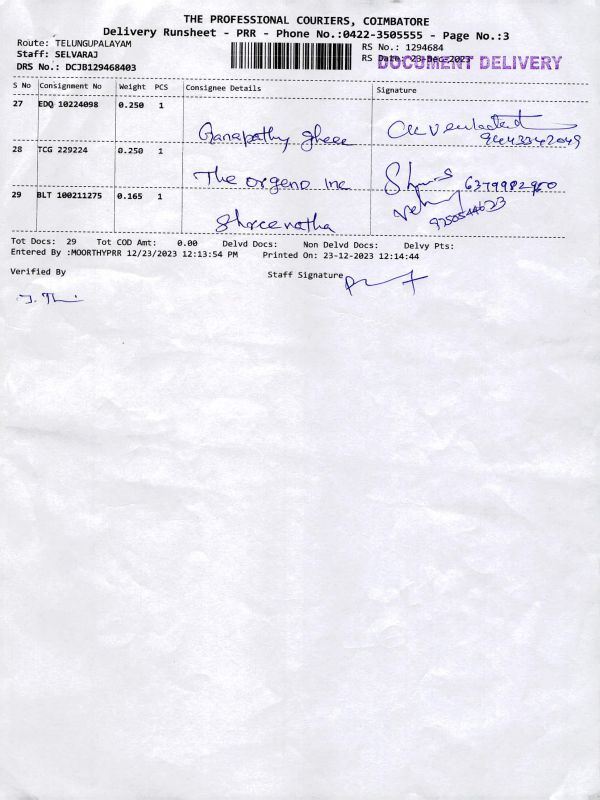 THE PROFESSIONAL COURIERS, COIMBATORE
Delivery Runsheet - PRR - Phone No.:0422-3505555 - Page No.:3
Route: TELUNGUPALAYAM
Staff: SELVARAJ
DRS No.: DCJB129468403
RS No.: 1294684
RS Date: 23-Dec-2023
DOCUMENT DELIVERY
S No Consignment No Weight PCS Consignee Details Signature
27 EDQ 10224098 0.250 1
Ganapathy ghee
9443342049
28 TCG 229224 0.250 1
The orgeno inc
6379982900
29 BLT 100211275 0.165 1
Shreenatha
Tot Docs: 29 Tot COD Amt: 0.00 Delvd Docs: Non Delvd Docs: Delvy Pts:
Entered By :MOORTHYPRR 12/23/2023 12:13:54 PM Printed On: 23-12-2023 12:14:44
Verified By
Staff Signature